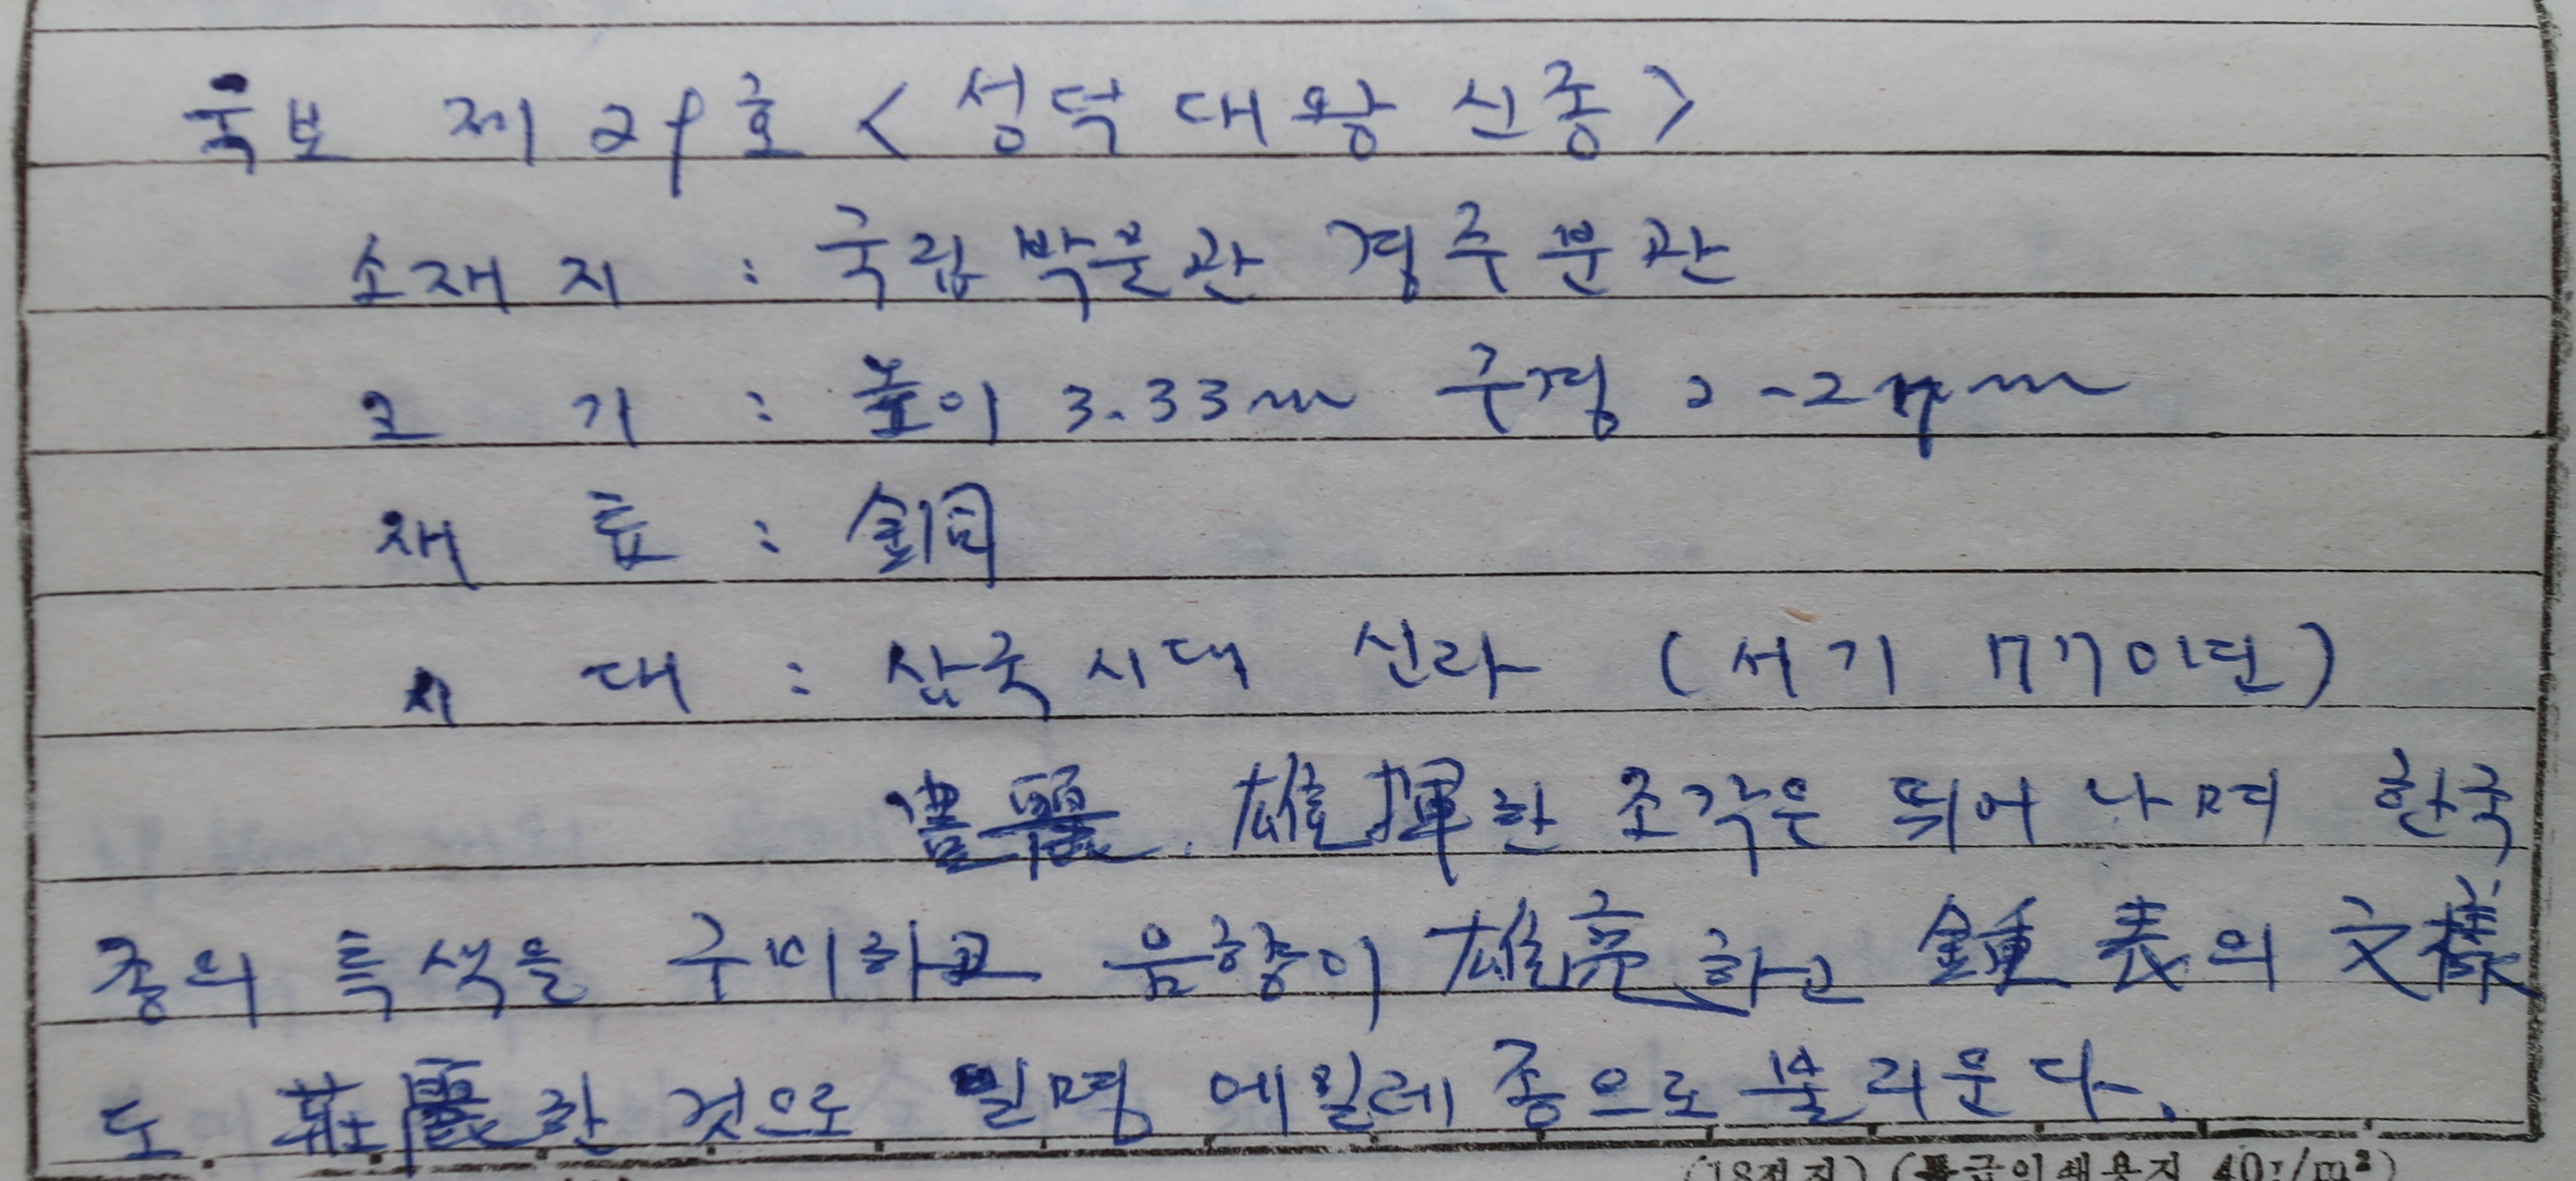 국보 제29호 <성덕대왕신종>
소재지 : 국립박물관 경주분관
크 기 : 높이 3.33m 구경 2.27m
재 료 : 銅
시 대 : 삼국시대 신라 (서기 770년)
豊麗, 雄揮한 조각은 뛰어나며 한국
종의 특색을 구비하고 음향이 雄亮하고 鐘表의 文樣
도 莊麗한 것으로 일명 에밀레종으로 불리운다.